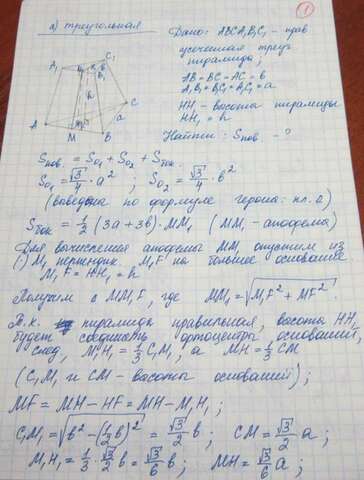 1
а) треугольная
Дано: ABCA₁B₁C₁ - прав
усеченная треуг.
пирамида;
AB = BC = AC = в
A₁B₁ = B₁C₁ = A₁C₁ = a
HH₁ - высота пирамиды
HH₁ = h
Найти: Sпов. - ?
A₁ C₁ B₁ h A C a M B
Sпов. = So₁ + So₂ + Sбок.
So₁ = √3/4 · a² ; So₂ = √3/4 · в²
(выведена по формуле герона: пл. Δ)
Sбок = 1/2 (3a + 3в) · MM₁ (MM₁ - апофема)
Для вычисления апофемы MM₁ опустим из
() M₁ перпендик. M₁F на большее основание
M₁F = HH₁ = h
Получим Δ MM₁F, где MM₁ = √M₁F² + MF² .
Т.к. пирамида правильная, высота HH₁
будет соединять ортоцентры оснований,
след, M₁H₁ = 1/3 C₁M₁ , а MH = 1/3 CM
(C₁M₁ и CM - высоты оснований);
MF = MH - HF = MH - M₁H₁ ;
C₁M₁ = √в² - (1/2 в)² = √3/2 в ; CM = √3/2 a ;
M₁H₁ = 1/3 · √3/2 в = √3/6 в ; MH = √3/6 a ;